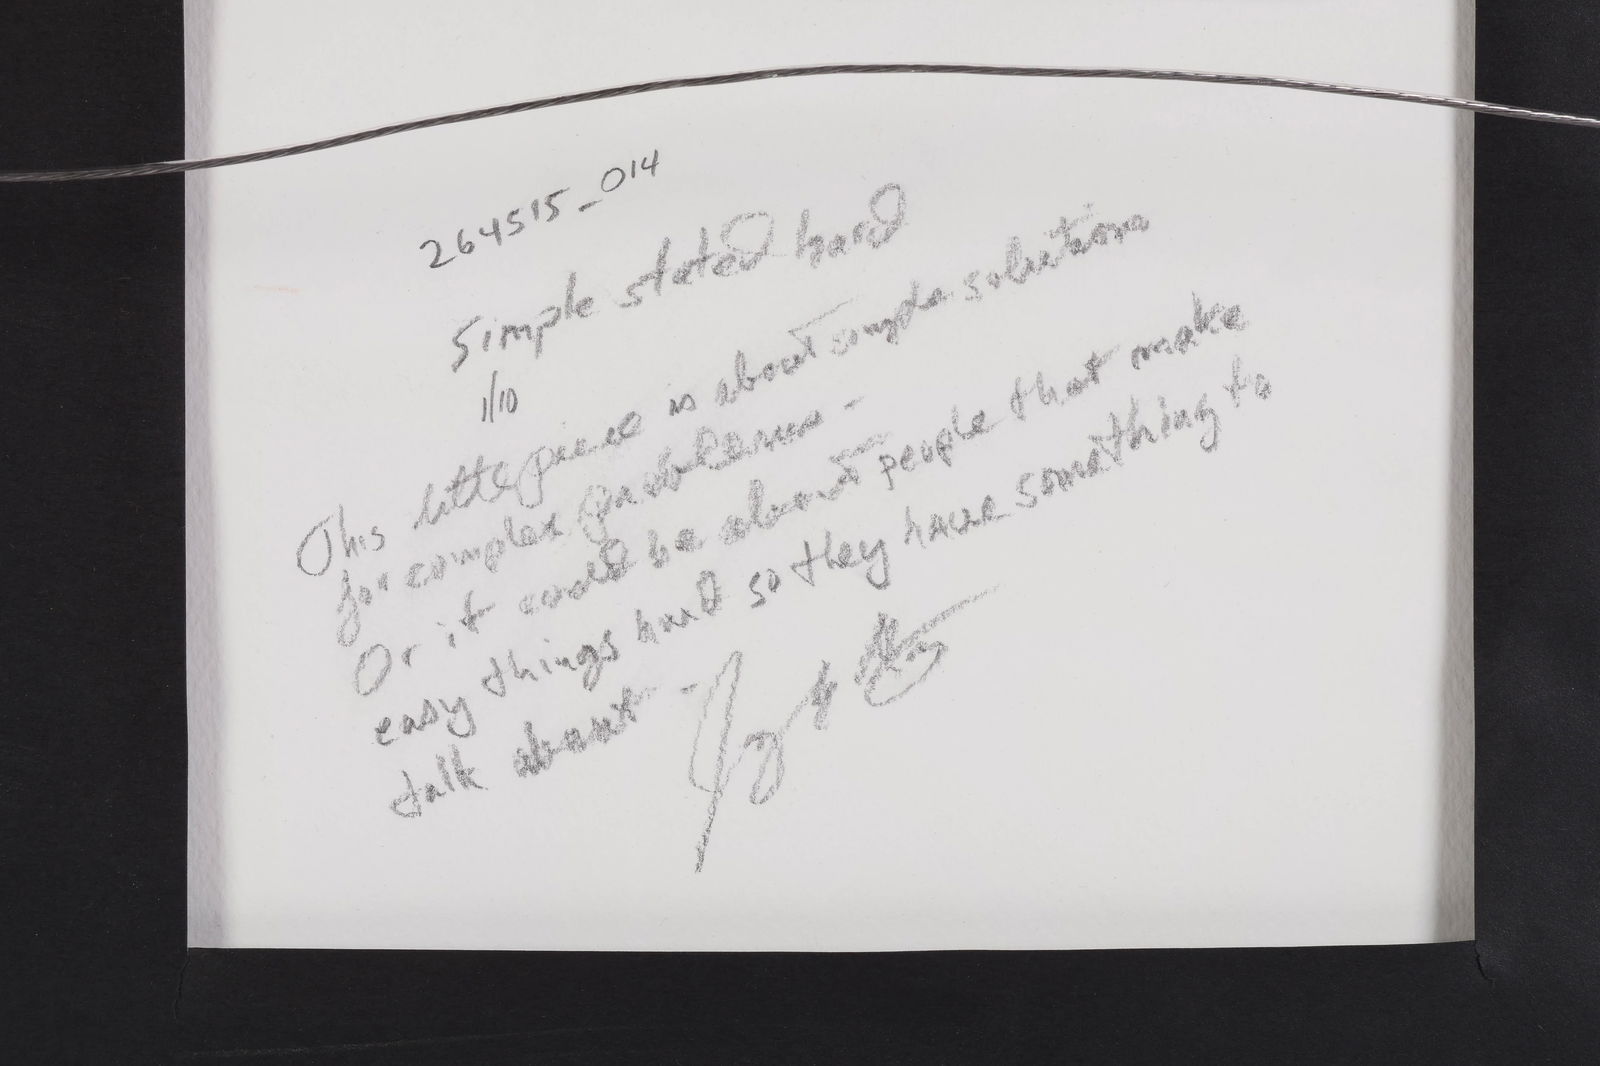 264515_014
Simple stated hard
1/10
This little piece is about simple solutions
for complex problems -
Or it could be about people that make
easy things hard so they have something to
talk about -